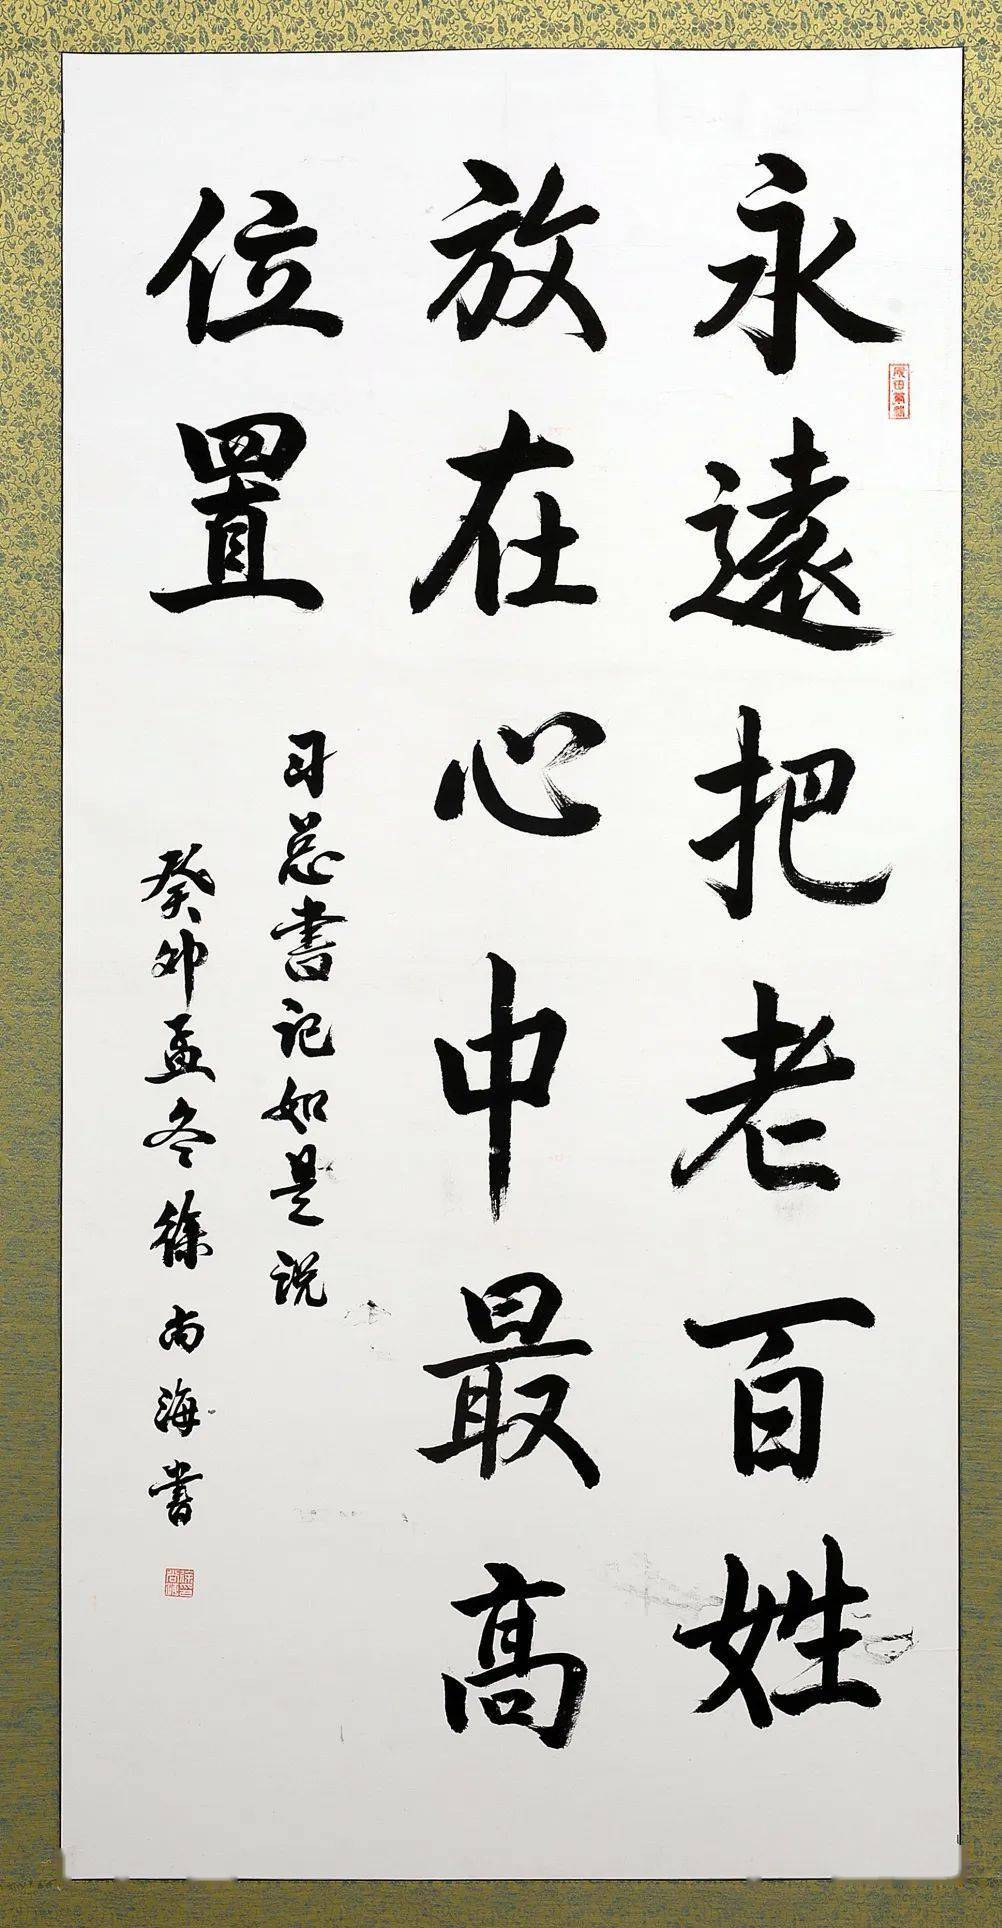 永遠把老百姓
放在心中最高
位置
习总書记如是说
癸卯孟冬徐尚海書